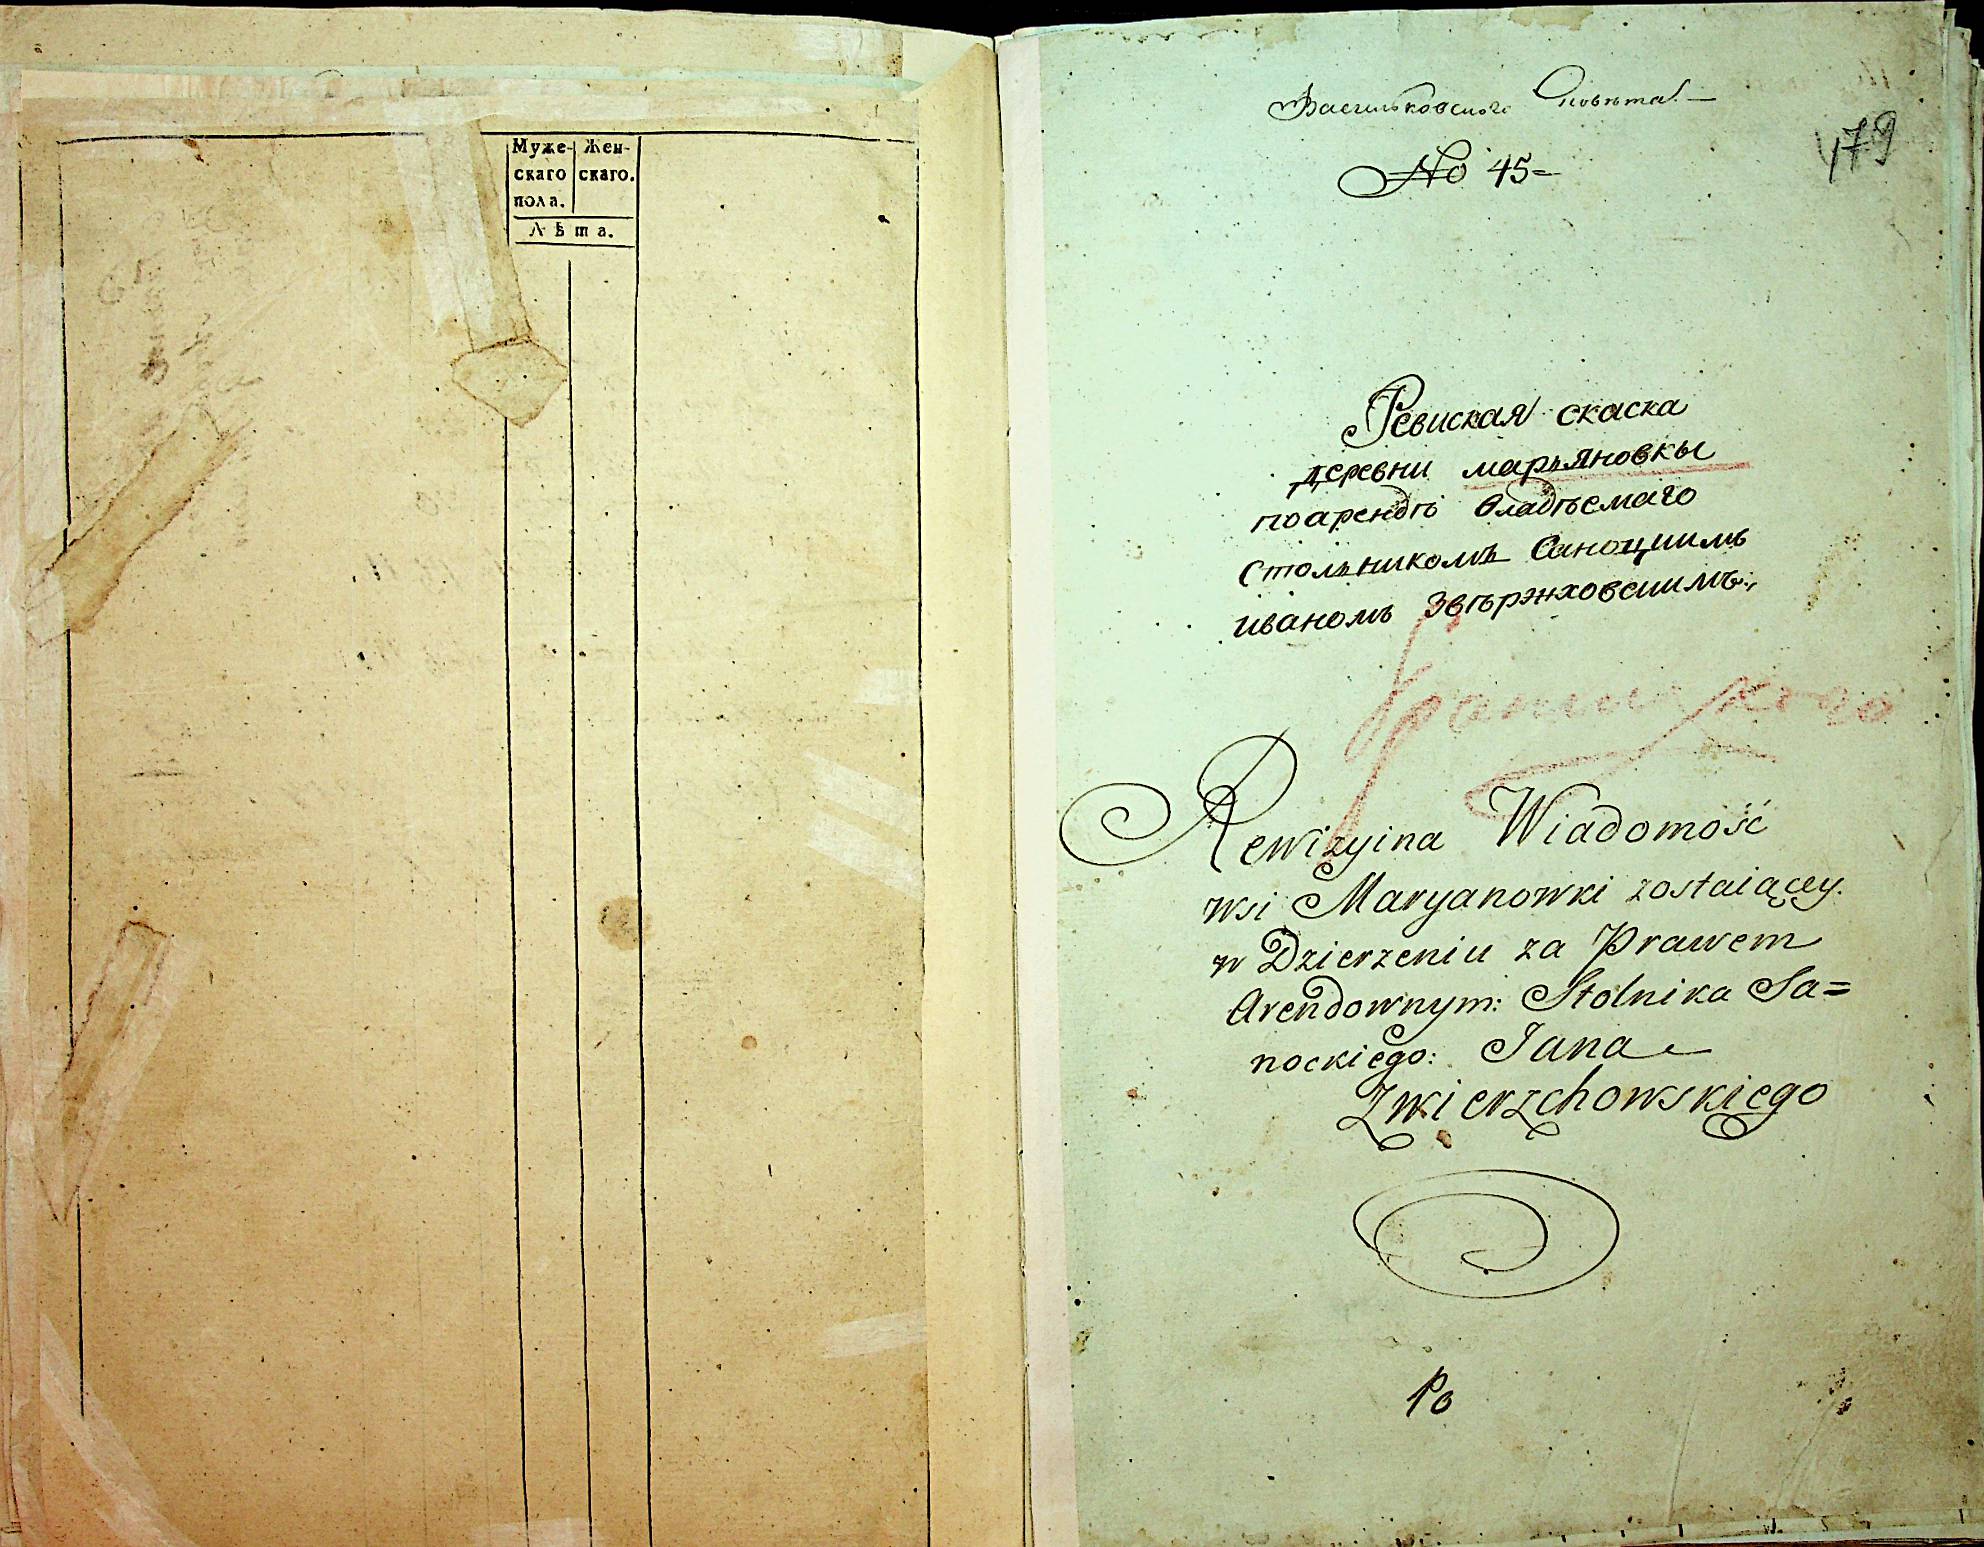 Муже- Жен-
скаго скаго.
пола.
Лѣта.
Васильковского Повѣта.
479
No 45=
Ревиская скаска
деревни марьяновкы
поарендѣ владѣемаго
стольникомъ Саноцкимъ
иваномъ Звѣрэнховскимъ
Rewizyina Wiadomość
wsi Maryanowki zostaiącey.
w Dzierzeniu za Prawem
Arendownym: Stolnika Sa=
nockiego: Jana
Zwierzchowskiego